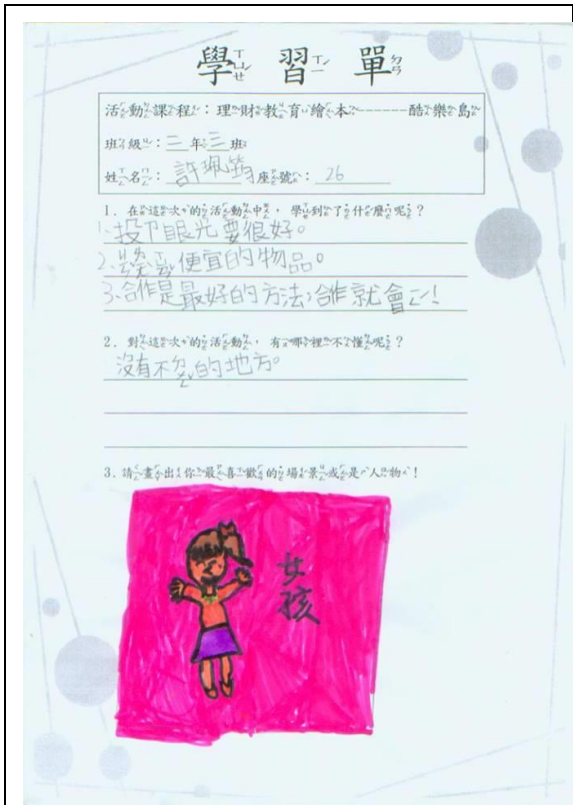 學習單
活動課程：理財教育繪本------酷樂島
班級：三年三班
姓名：許珮筠 座號：26
1. 在這次的活動中，學到了什麼呢？
1、投ㄗ眼光要很好。
2、 便宜的物品。
3、合作是最好的方法，合作就會ㄥˊ！
2. 對這次的活動，有哪裡不懂呢？
沒有不ㄉㄨㄥˇ的地方。
3. 請畫出你最喜歡的場景或是人物！
女孩